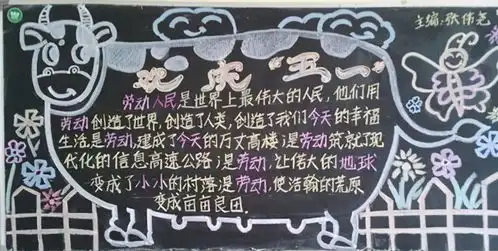 主编:张伟尧
欢庆"五一"
劳动人民是世界上最伟大的人民,他们用
劳动创造了世界,创造了人类,创造了我们今天的幸福
生活是劳动,建成了今天的万丈高楼是劳动筑就了现
代化的信息高速公路是劳动,让偌大的地球
变成了小小的村落是劳动,使浩翰的荒原
变成亩亩良田.